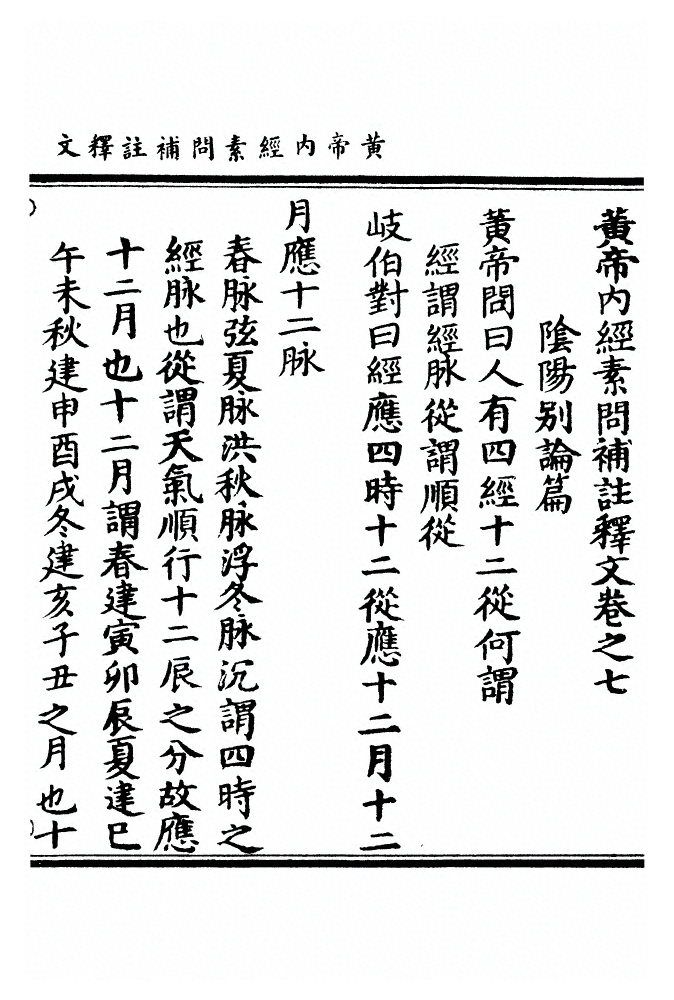 黄帝内經素問補註釋文
黄帝内經素問補註釋文卷之七
陰陽别論篇
黄帝問曰人有四經十二從何謂
經謂經脉從謂順從
岐伯對曰經應四時十二從應十二月十二
月應十二脉
春脉弦夏脉洪秋脉浮冬脉沉謂四時之
經脉也從謂天氣順行十二辰之分故應
十二月也十二月謂春建寅卯辰夏建巳
午未秋建申酉戌冬建亥子丑之月也十